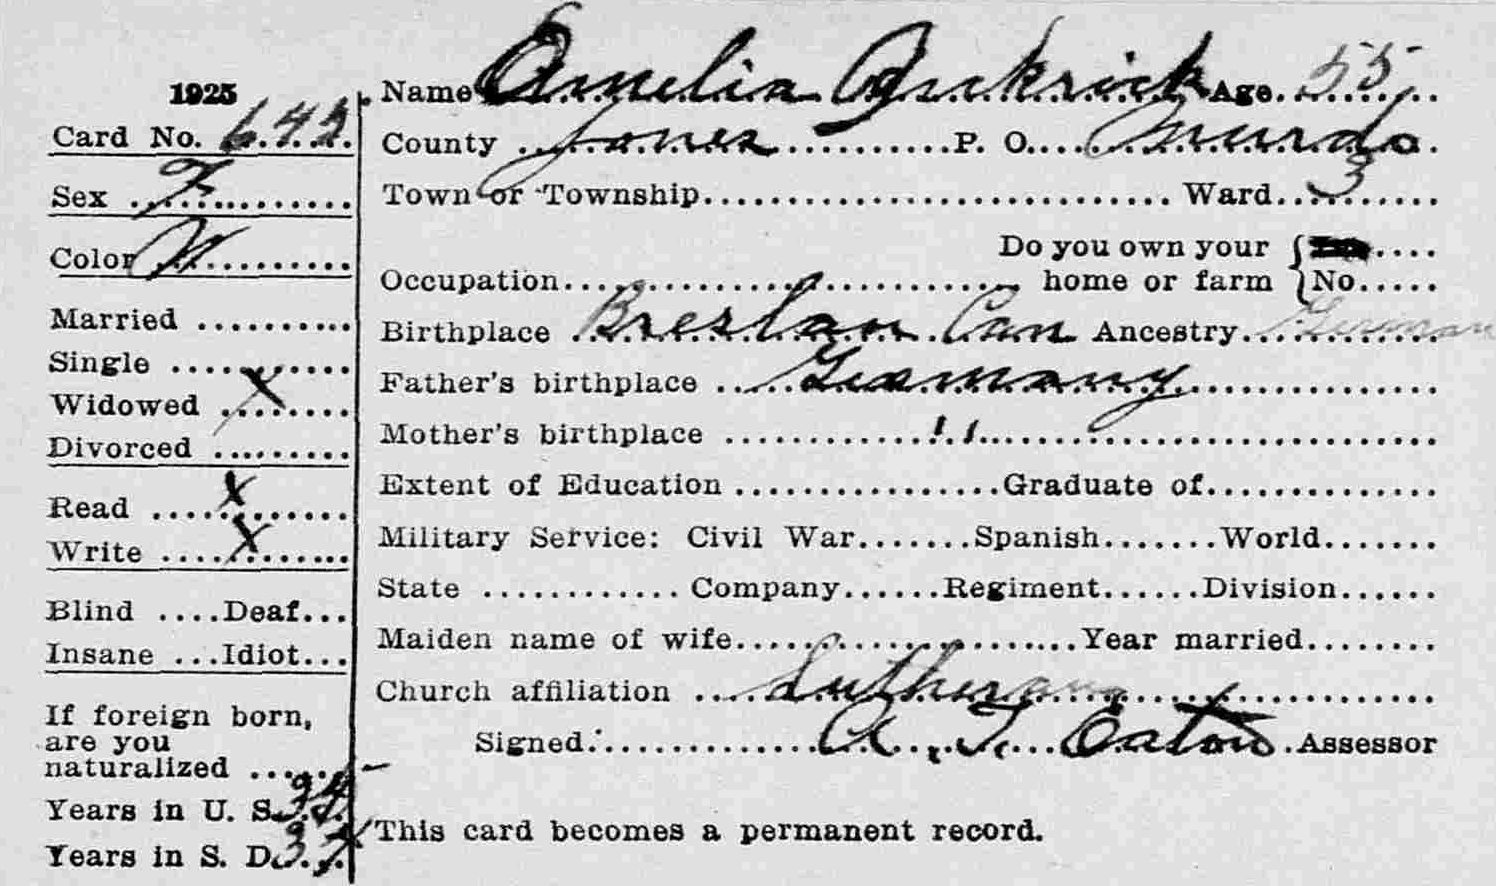 1925
Card No. 642
Sex F
Color W
Married
Single
Widowed X
Divorced
Read X
Write X
Blind Deaf
Insane Idiot
If foreign born,
are you
naturalized
Years in U. S.
Years in S. D.
Name Amelia Age 55
County Jones P. O. Murdo
Town or Township Ward 3
Do you own your
Occupation home or farm No
Birthplace Breslau Can Ancestry German
Father's birthplace Germany
Mother's birthplace " 
Extent of Education Graduate of
Military Service: Civil War Spanish World
State Company Regiment Division
Maiden name of wife Year married
Church affiliation Lutheran
Signed: A. T. Eaton Assessor
This card becomes a permanent record.